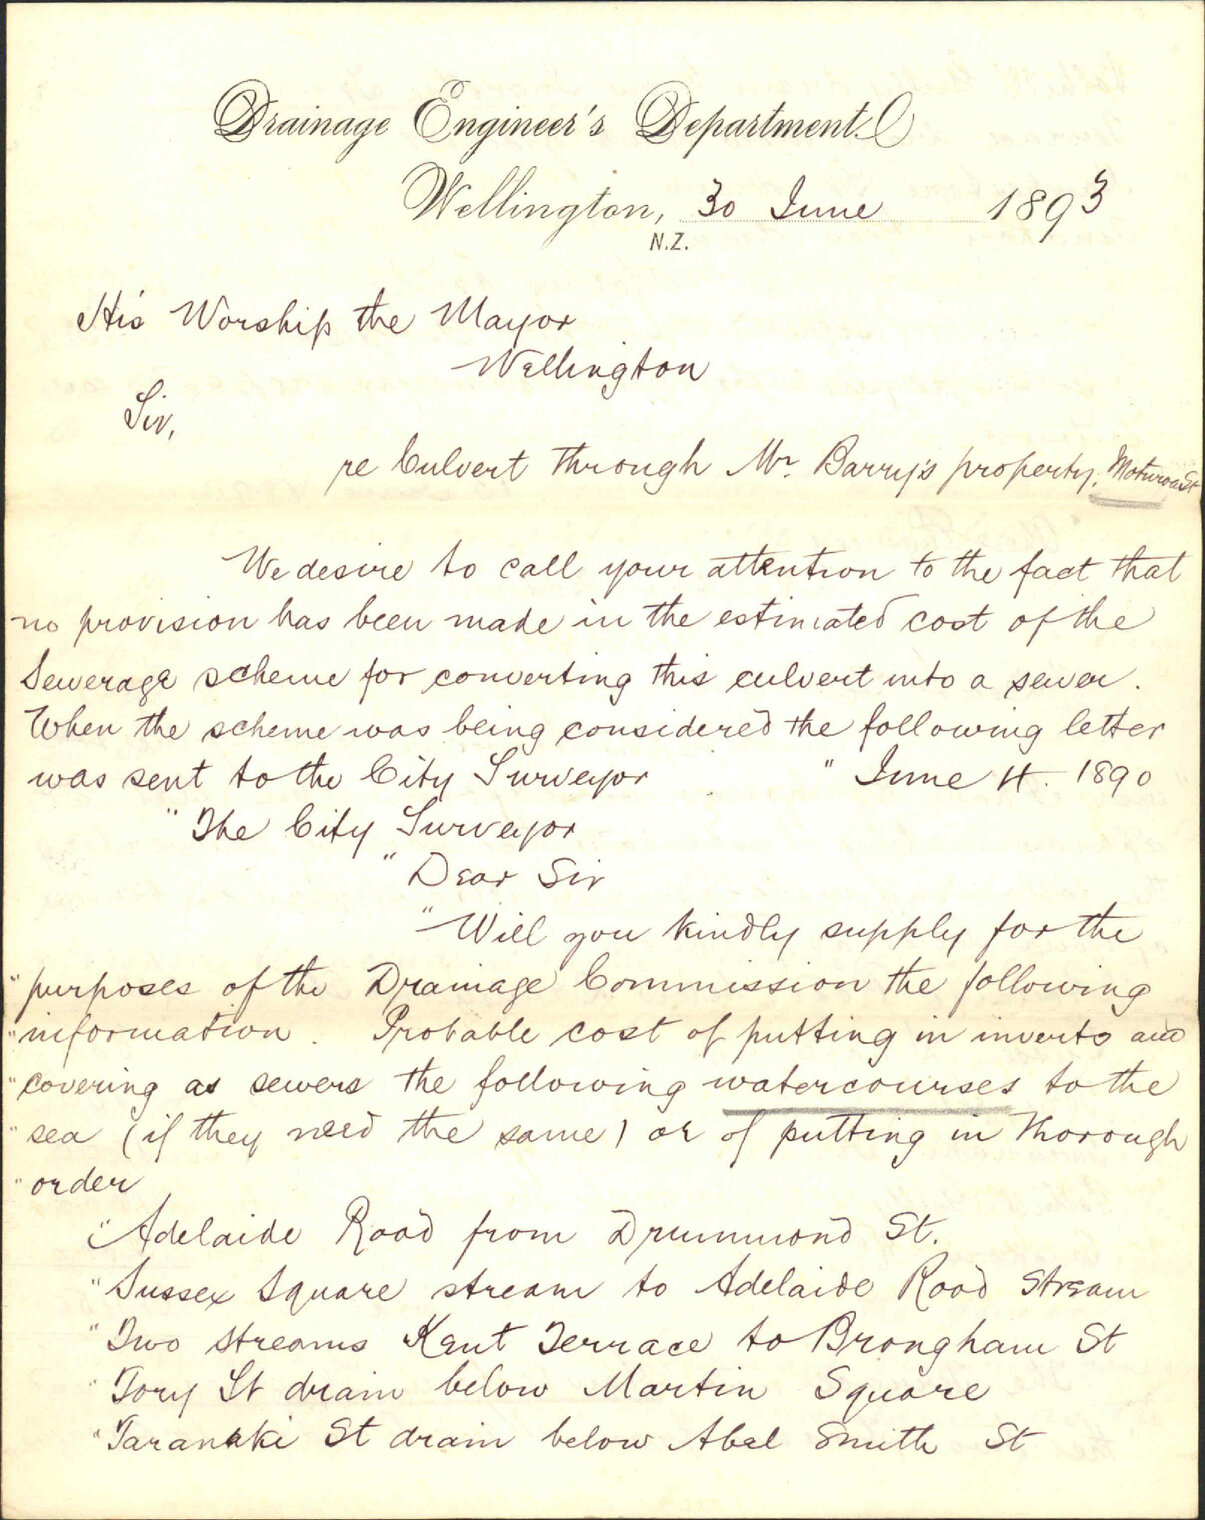 Drainage Engineer's Department.
Wellington, 30 June 1893
N.Z.
His Worship the Mayor
Wellington
Sir,
re Culvert through Mr. Barry's property, Moturoa St
We desire to call your attention to the fact that
no provision has been made in the estimated cost of the
Sewerage scheme for converting this culvert into a sewer.
When the scheme was being considered the following letter
was sent to the City Surveyor " June 4. 1890
" The City Surveyor
" Dear Sir
" Will you kindly supply for the
" purposes of the Drainage Commission the following
" information. Probable cost of putting in inverts and
" covering as sewers the following watercourses to the
" sea (if they need the same) or of putting in thorough
" order
" Adelaide Road from Drummond St.
" Sussex Square stream to Adelaide Road Stream
" Two streams Kent Terrace to Brougham St
" Tory St drain below Martin Square
" Taranaki St drain below Abel Smith St